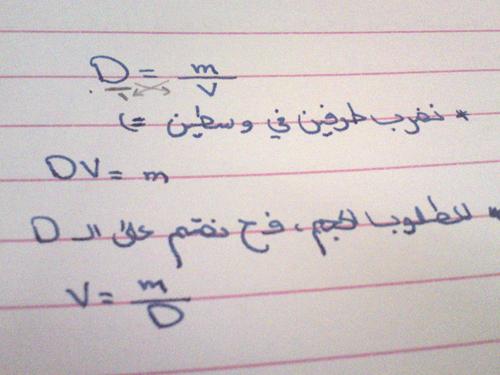 D = m/V
* نضرب طرفين في وسطين =>
DV = m
* المطلوب الحجم، فح نقسم على الـ D
V = m/D